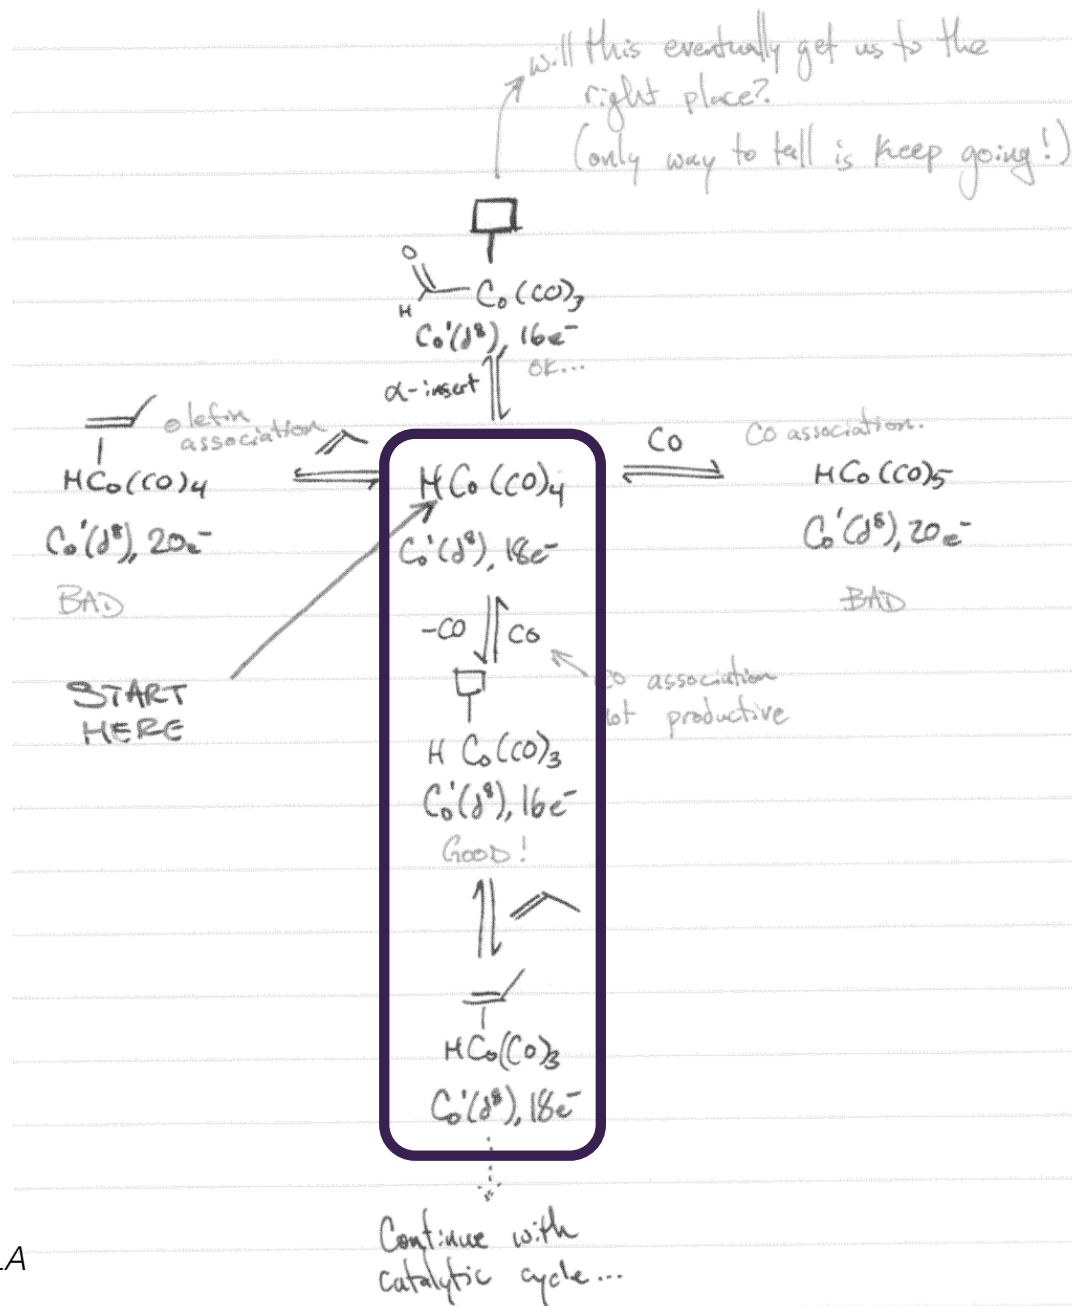 will this eventually get us to the
right place?
(only way to tell is keep going!)
O
H
Co(CO)3
Co'(d8), 16e-
OK...
α-insert
olefin
association
HCo(CO)4
Co'(d8), 20e-
BAD
HCo(CO)4
Co'(d8), 18e-
CO
CO association.
HCo(CO)5
Co'(d8), 20e-
BAD
-CO
CO
CO association
not productive
START
HERE
H Co(CO)3
Co'(d8), 16e-
GOOD!
HCo(CO)3
Co'(d8), 18e-
Continue with
catalytic cycle...